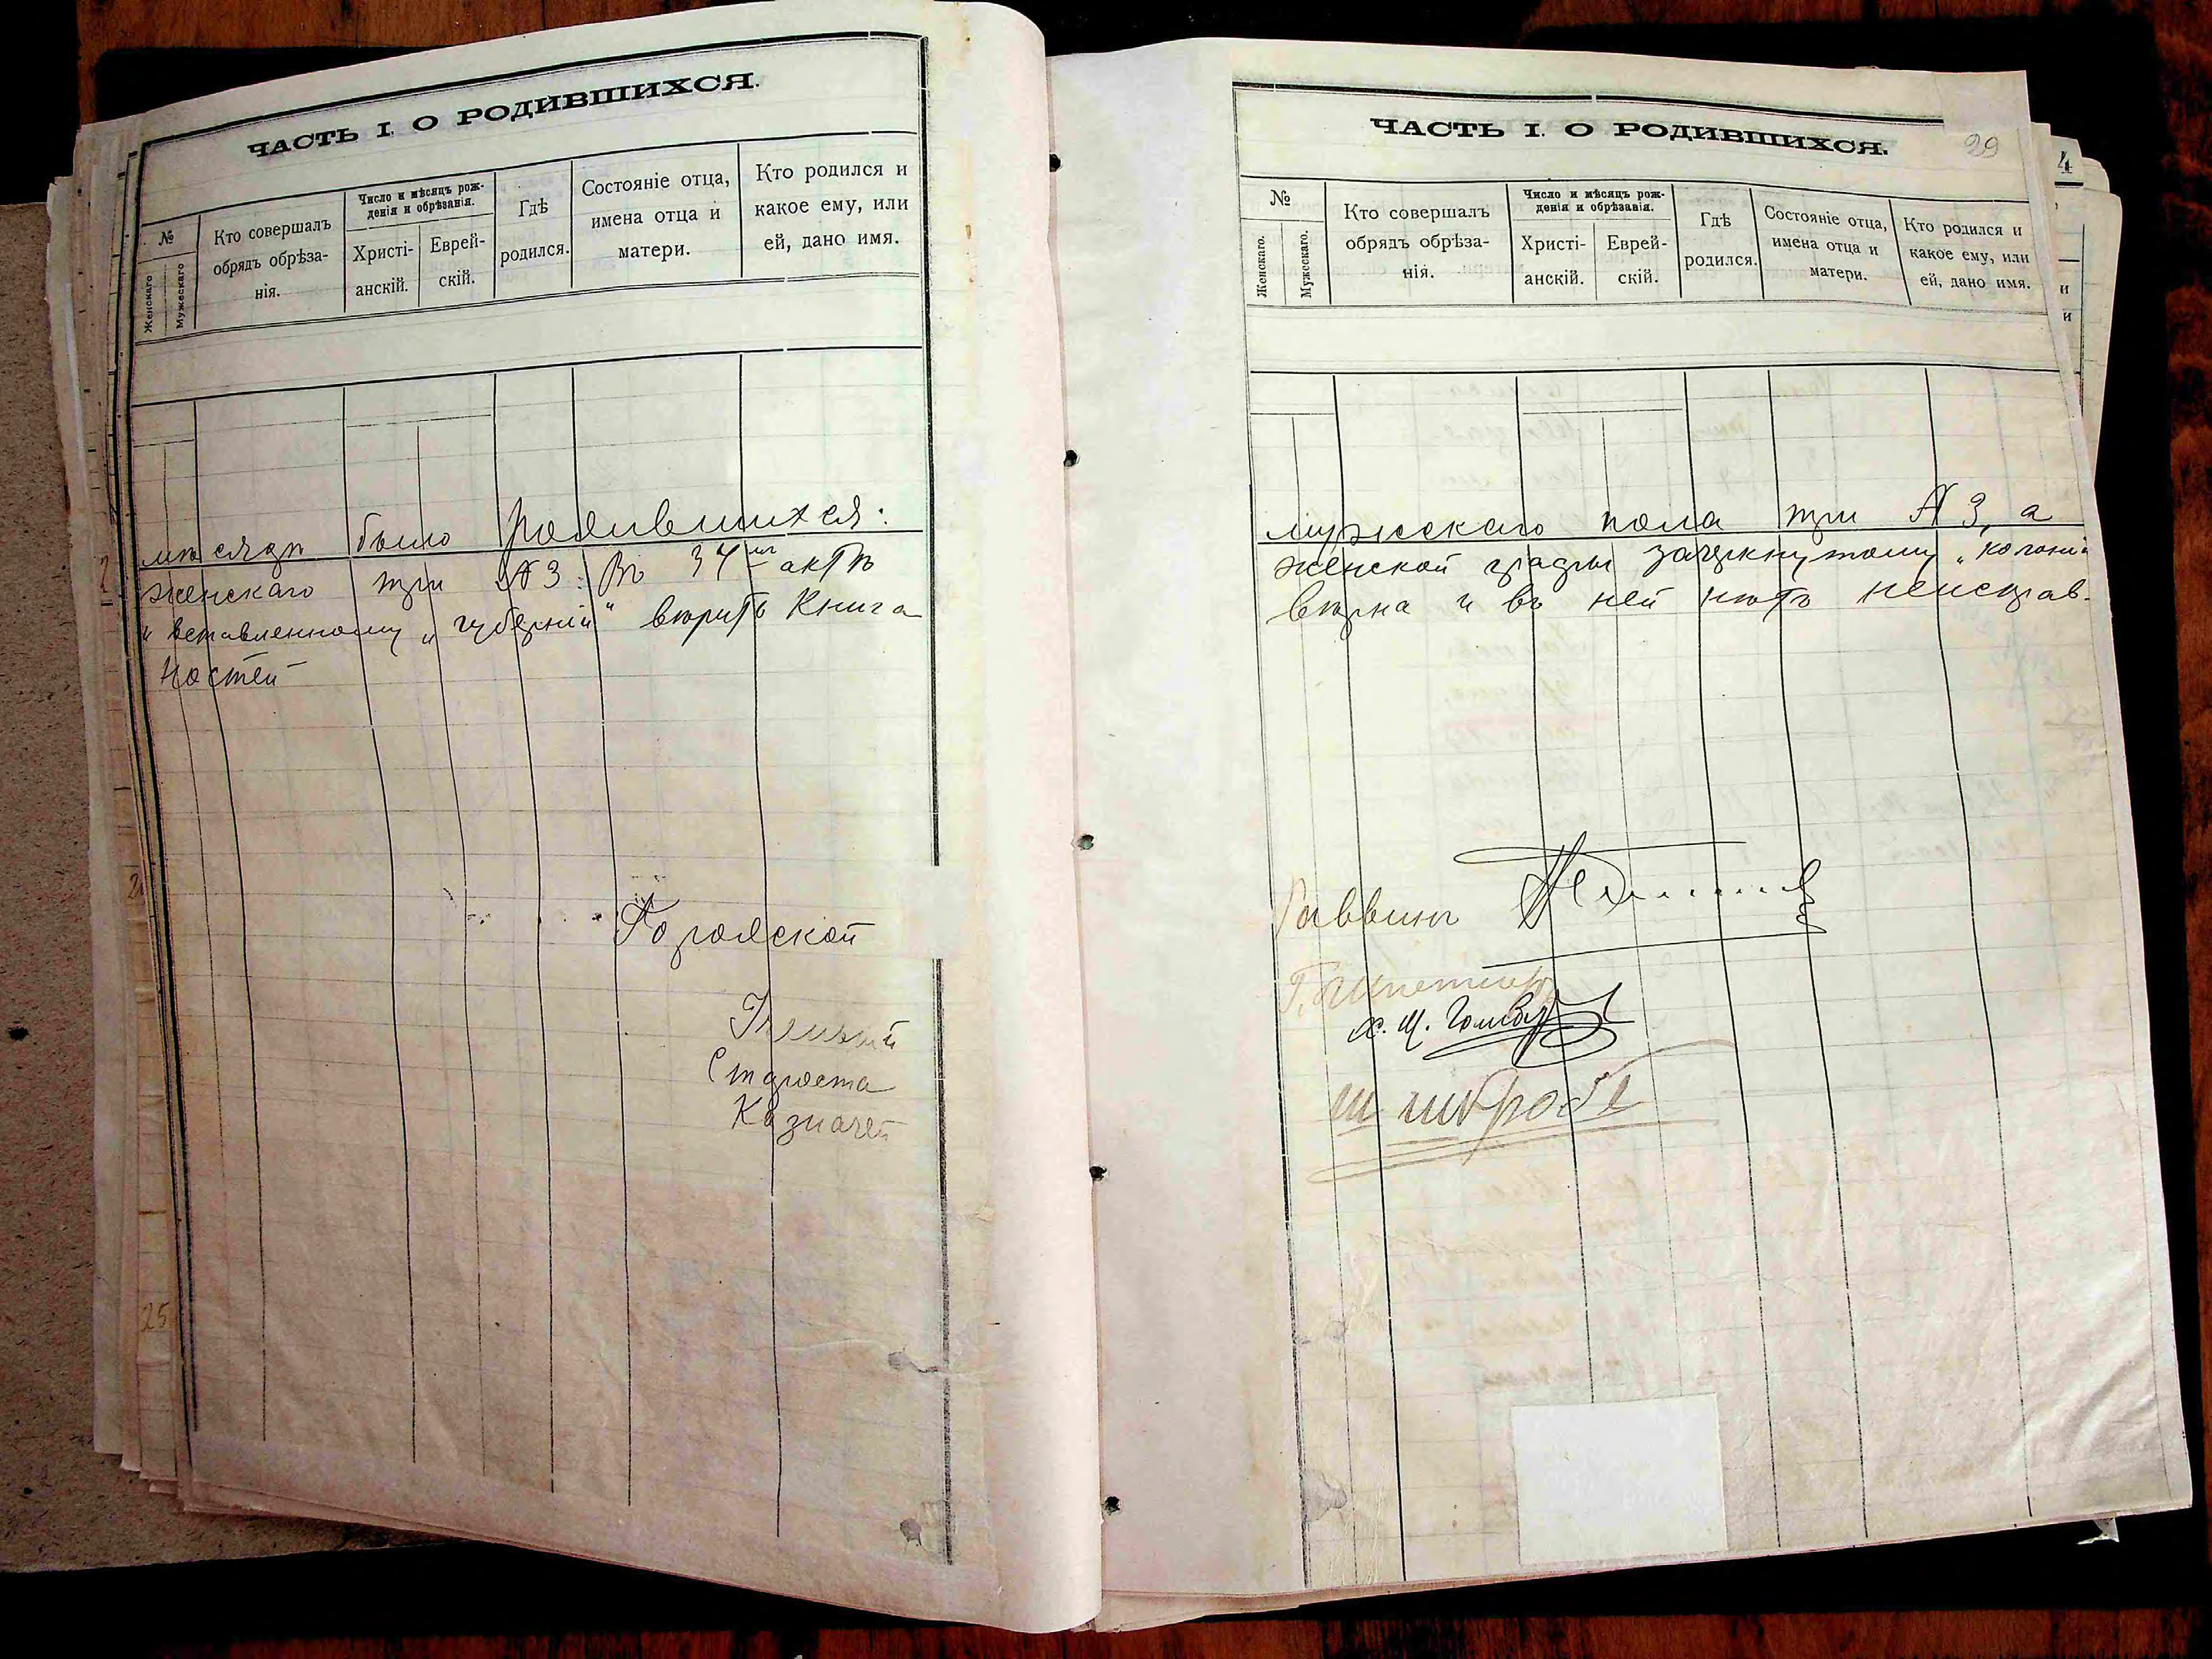 ЧАСТЬ I. О РОДИВШИХСЯ.
№
Женскаго
Мужескаго
Кто совершалъ
обрядъ обрѣза-
нія.
Число и мѣсяцъ рож-
денія и обрѣзанія.
Христі-
анскій.
Еврей-
скій.
Гдѣ
родился.
Состояніе отца,
имена отца и
матери.
Кто родился и
какое ему, или
ей, дано имя.
мѣсяцъ было родившихся:
женскаго три № 3. Въ 34 актѣ
и вставленному „губерніи“ вѣрить Книга
ностей
Городской
Ученый
Староста
Казначей
ЧАСТЬ I. О РОДИВШИХСЯ.
29
№
Женскаго.
Мужескаго.
Кто совершалъ
обрядъ обрѣза-
нія.
Число и мѣсяцъ рож-
денія и обрѣзанія.
Христі-
анскій.
Еврей-
скій.
Гдѣ
родился.
Состояніе отца,
имена отца и
матери.
Кто родился и
какое ему, или
ей, дано имя.
4
и
и
мужескаго пола три № 3, а
женской графы зачеркнутому „колоніи“
вѣрна и въ ней нѣтъ неисправ-
Раввинъ
Х. Ш.
Ш
25